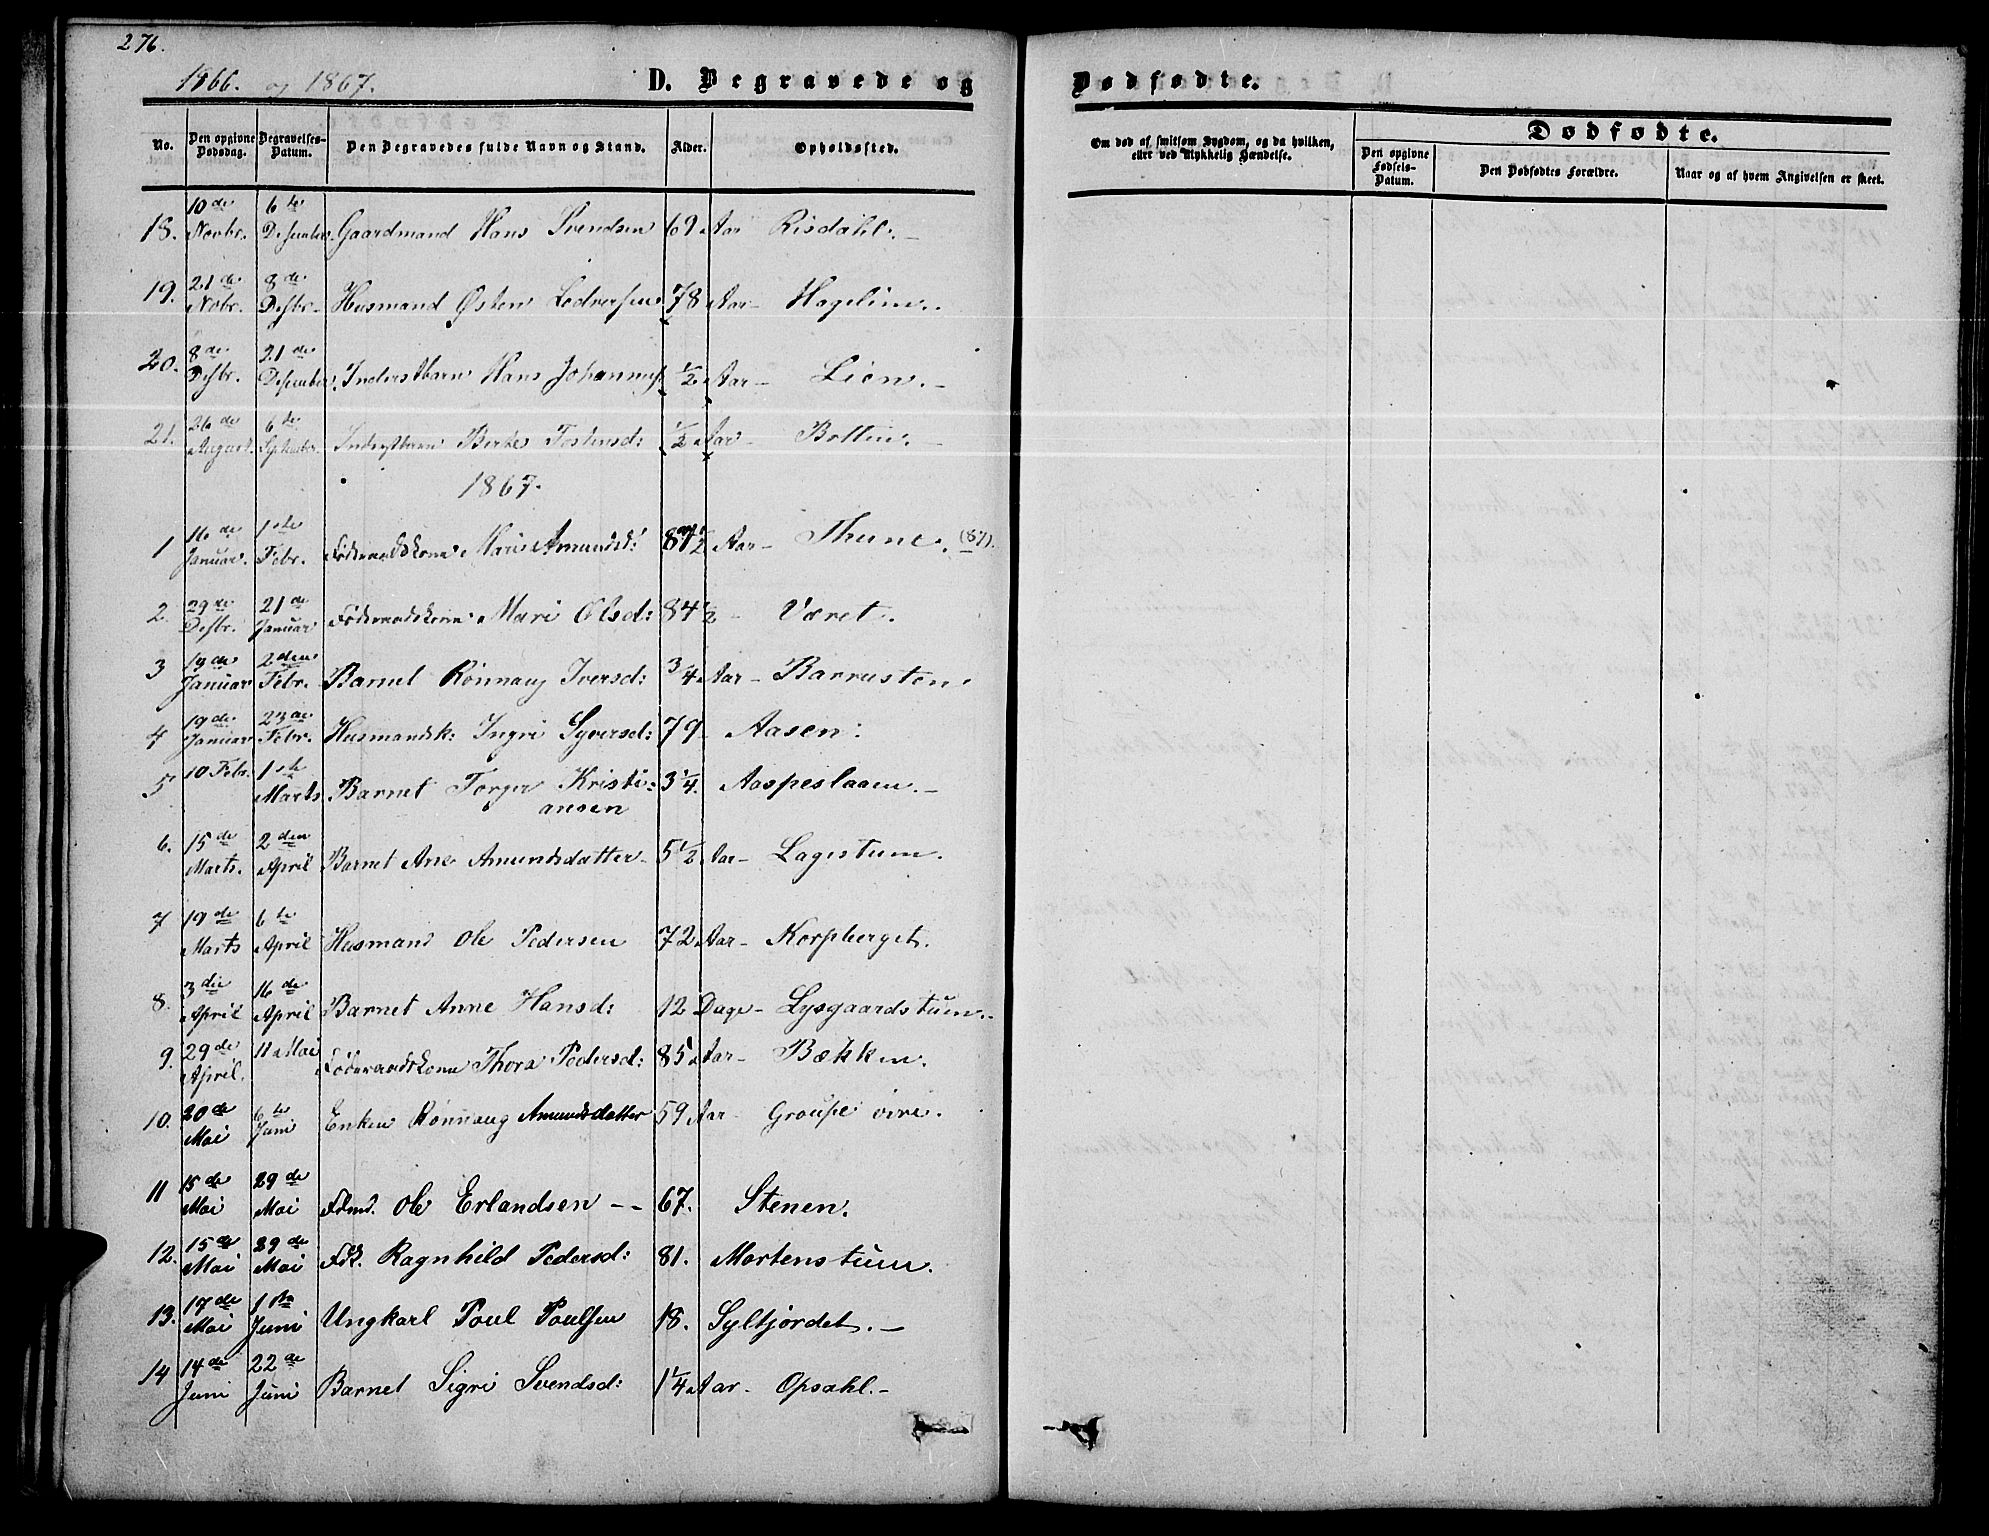 276.
1866. og 1867. D. Begravede og Dødfødte.
No. Den opgivne Dødsdag. Begravelses-Datum. Den Begravedes fulde Navn og Stand. Alder. Opholdssted. Om død af smitsom Sygdom, og da hvilken, eller ved ulykkelig Hændelse. Dødfødte. Den opgivne Fødsels-Datum. Den Dødfødtes Forældre. Naar og af hvem Angivelsen er skeet.
18. 10de Novbr. 6te Desember. Gaardmand Hans Svendsen 69 Aar Risdahl.
19. 21de Nobr. 8de Desbr. Husmand Østen Lodversen 78 Aar Hagelien.
20. 8de Desbr. 21de Desember. Inderstbarn Hans Johannes. 1/2 Aar Lien.
21. 26de August. 6te September. Inderstbarn Berte Tostensd: 1/2 Aar Botten.
1867.
1 16de Januar. 1ste Febr. Føderaadskone Mari Amundsd: 87 1/2 Aar Thune. (87).
2. 29de Desbr. 21de Januar Føderaadskone Mari Olsd: 84 1/2 Været.
3 19de Januar 2den Febr. Barnet Rønnaug Iversd: 3/4 Aar Barrusten.
4 19de Januar 23de Febr. Husmandsk: Ingri Syversd: 79 Aasen:
5 10 Febr. 1ste Marts Barnet Torger Kristiansen 3 1/4. Aaspeslaaen.
6. 15de Marts. 2den April Barnet Ane Amundsdatter 5 1/2 Aar Lagestuen.
7 19de Marts 6te April Husmand Ole Pedersen 72 Aar Korpberget.
8. 3die April 16de April Barnet Anne Hansd: 12 Dage Lysgaardstuen.
9. 29de April. 11 Mai Føderaadskone Thora Pedersd: 85 Aar Bækken.
10. 20de Mai 6te Juni Enken Rønnaug Amundsdatter 59 Aar Groupe øvre.
11 15de Mai 29de Mai Fdmd. Ole Erlandsen 67. Stenen.
12. 15de Mai 29de Mai Fdk. Ragnhild Pedersd: 81. Mortenstuen.
13. 17de Mai 1ste Juni Ungkarl Poul Poulsen 18. Syltjordet.
14 14de Juni 22de Juni Barnet Sigri Svendsd: 1 1/4 Aar. Opsahl.